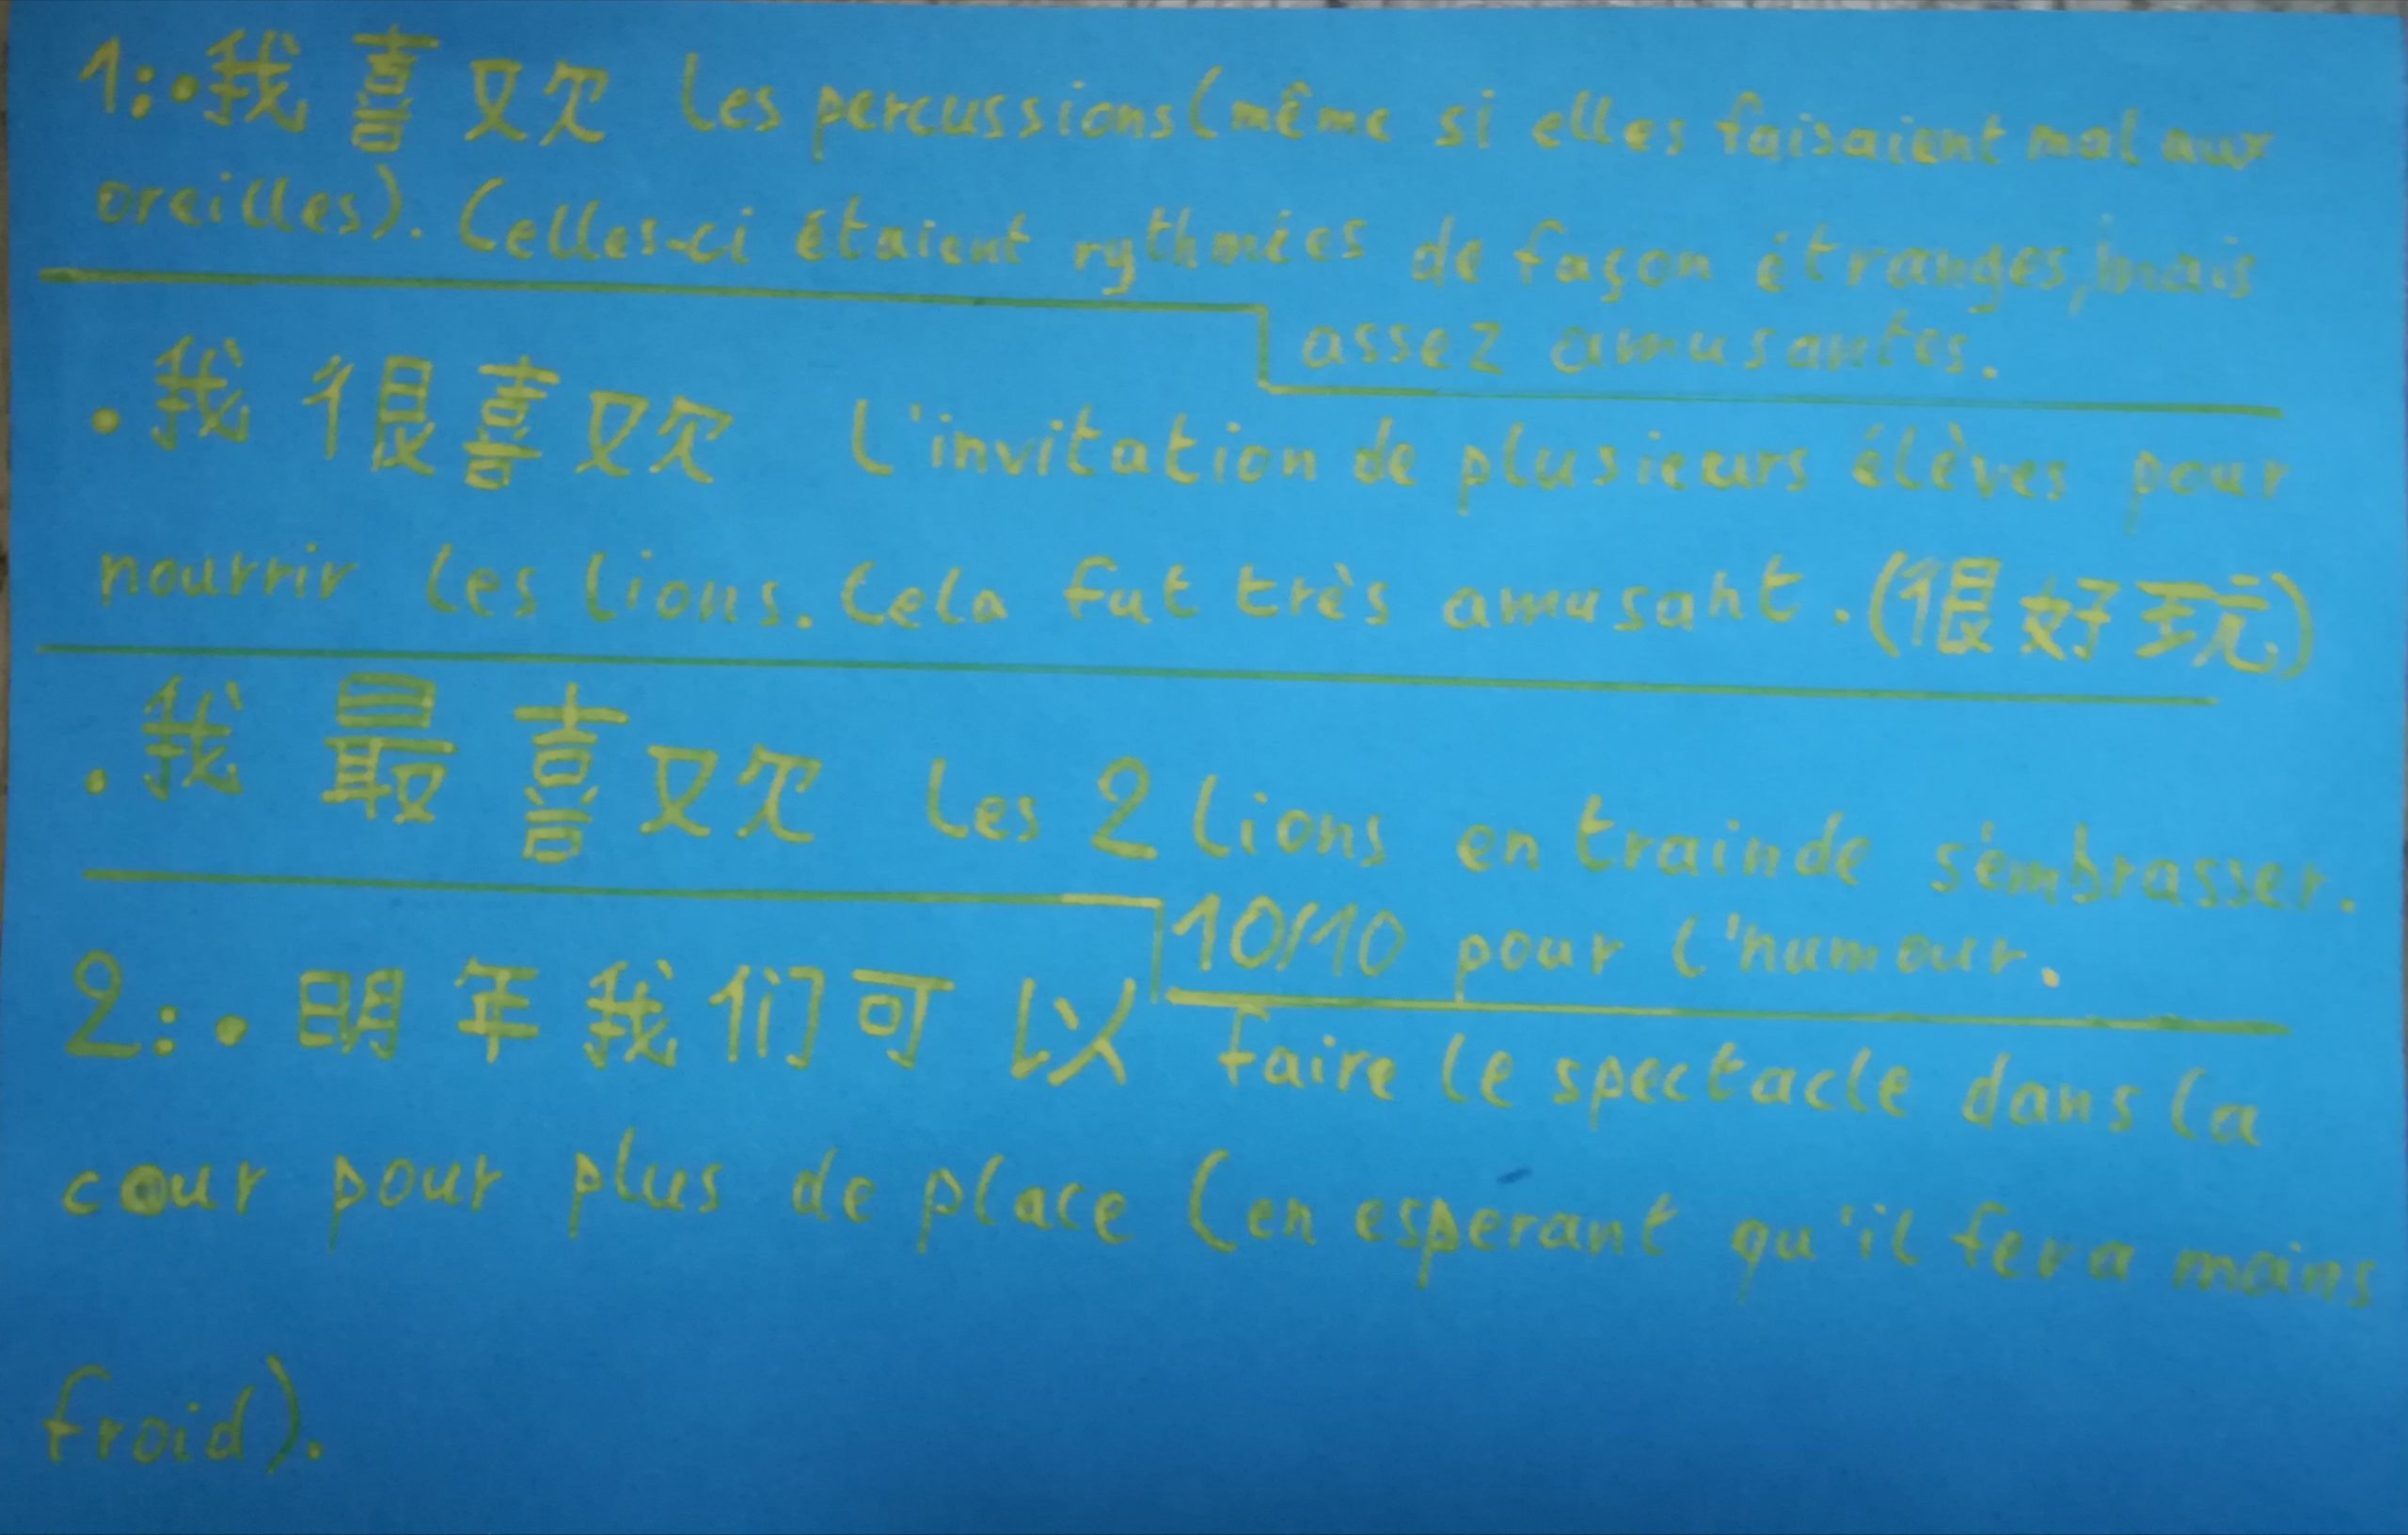 1:•我喜欢 les percussions (même si elles faisaient mal aux
oreilles). Celles-ci étaient rythmées de façon étranges, mais
assez amusantes.
•我很喜欢 l'invitation de plusieurs élèves pour
nourrir les lions. Cela fut très amusant. (很好玩)
•我最喜欢 les 2 lions en train de s'embrasser.
10/10 pour l'humour.
2:•明年我们可以 faire le spectacle dans la
cour pour plus de place (en espérant qu'il fera moins
froid).